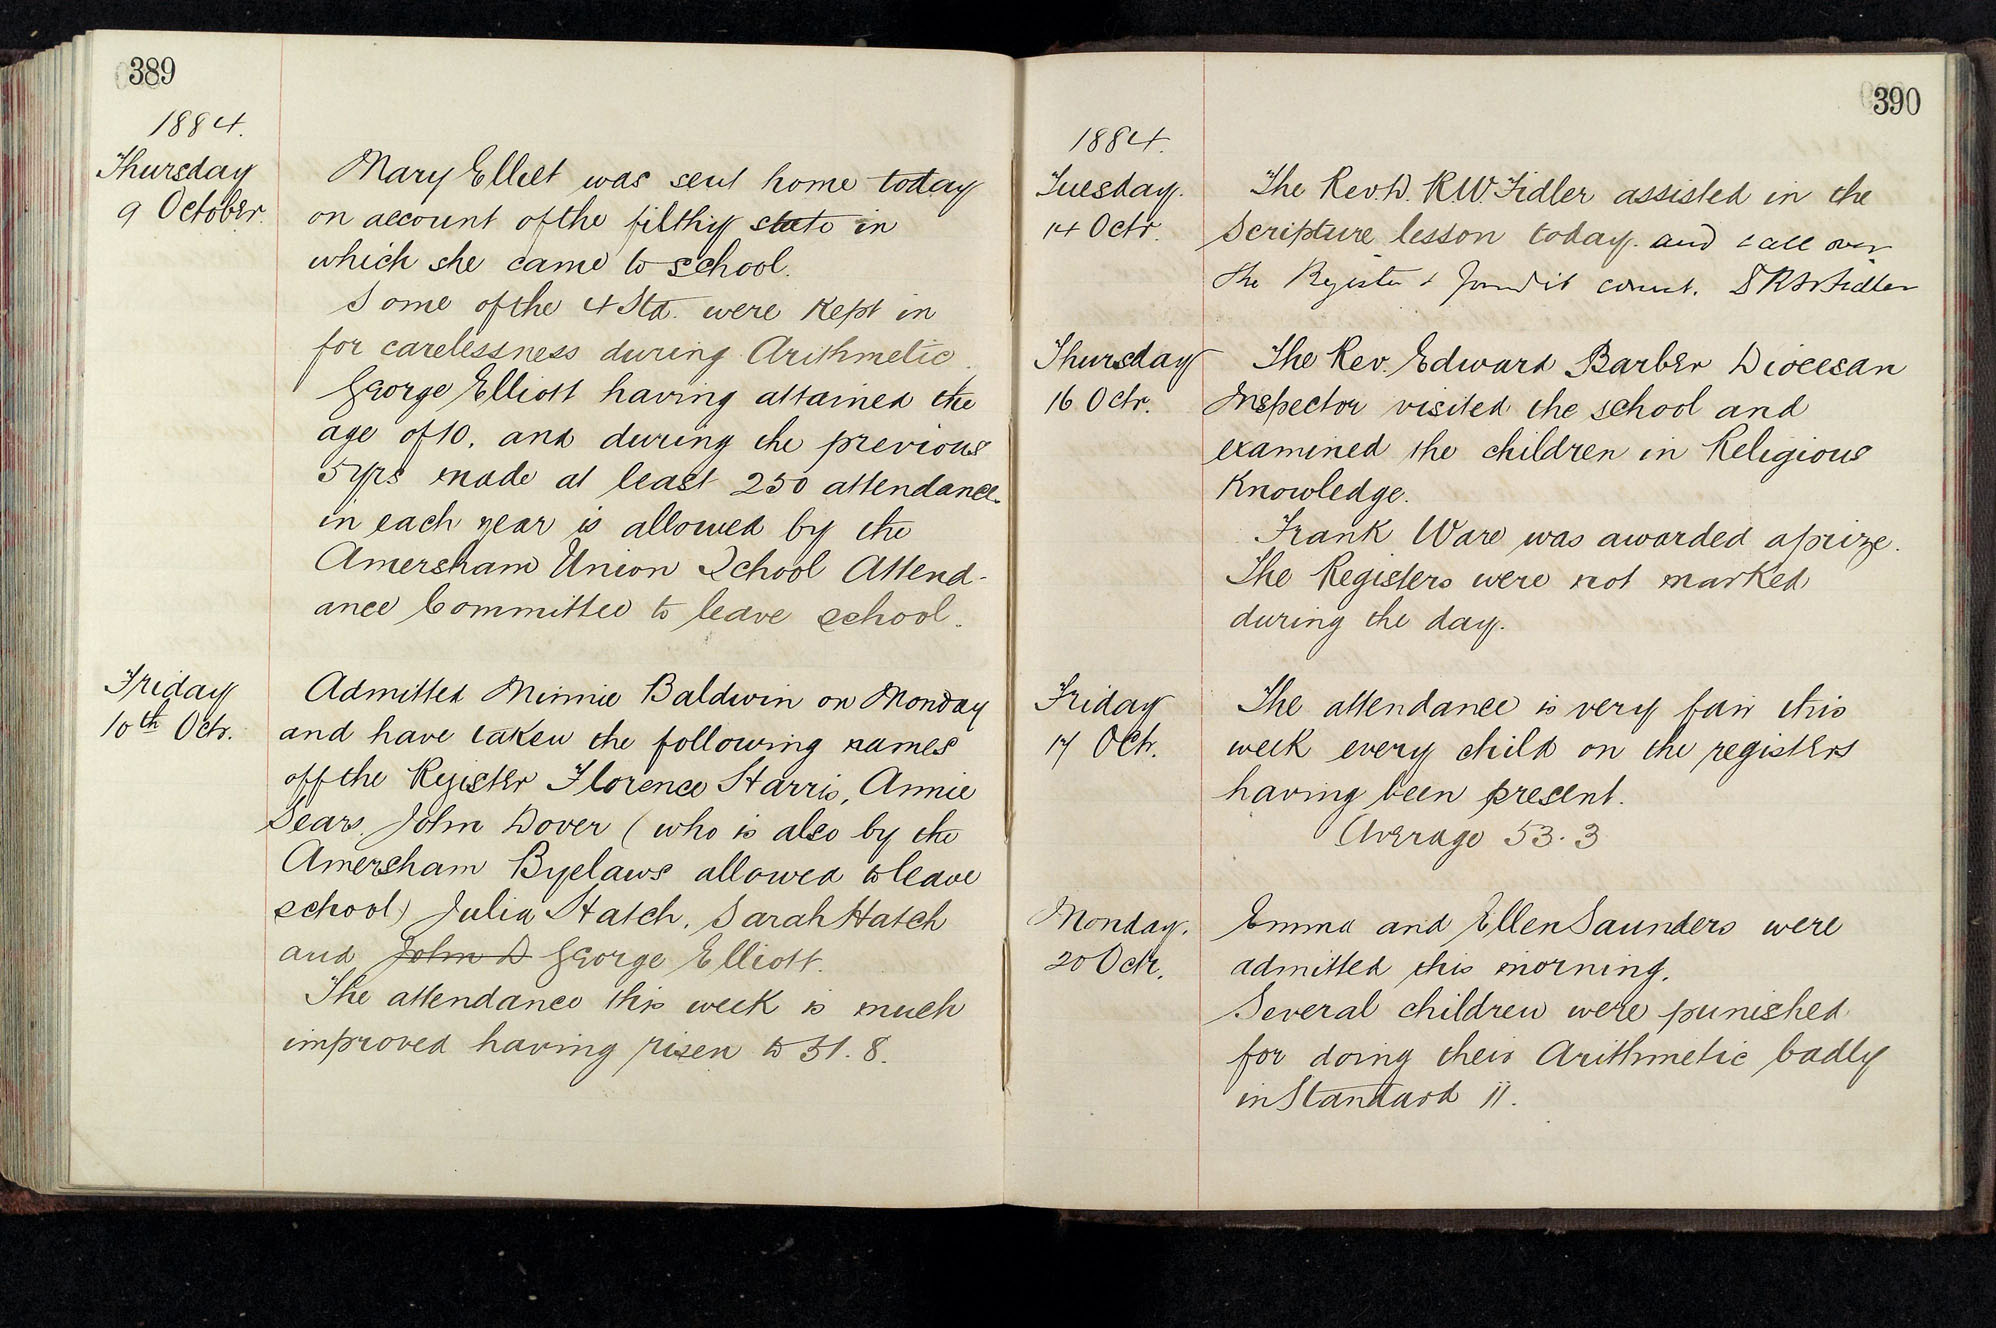 389
1884.
Thursday
9 October.
Mary Elliet was sent home today
on account of the filthy state in
which she came to school.
Some of the 4 Std. were kept in
for carelessness during Arithmetic.
George Elliott having attained the
age of 10. and during the previous
5 yrs made at least 250 attendance
in each year is allowed by the
Amersham Union School Attend-
ance Committee to leave school.
Friday
10th Octr.
Admitted Minnie Baldwin on Monday
and have taken the following names
off the Register Florence Harris, Annie
Sears. John Dover (who is also by the
Amersham Byelaws allowed to leave
school) Julia Hatch. Sarah Hatch
and John D George Elliott.
The attendance this week is much
improved having risen to 51.8.
390
1884.
Tuesday.
14 Octr.
The Revd. R.W. Fidler assisted in the
Scripture lesson today. and call over
the Register & found it correct. Fidler
Thursday
16 Octr.
The Rev. Edward Barber Diocesan
Inspector visited the school and
examined the children in Religious
Knowledge.
Frank Ware was awarded a prize.
The Registers were not marked
during the day.
Friday
17 Octr.
The attendance is very fair this
week every child on the registers
having been present.
Average 53.3
Monday.
20 Octr.
Emma and Ellen Saunders were
admitted this morning.
Several children were punished
for doing their Arithmetic badly
in Standard II.